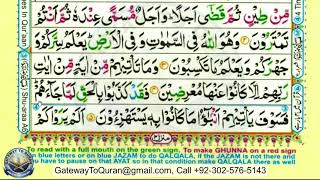 مِّنْ طِيْنٍ ثُمَّ قَضٰۤى اَجَلًا ؕ وَاَجَلٌ مُّسَمًّى عِنْدَهٗ ثُمَّ اَنْتُمْ
تَمْتَرُوْنَ وَهُوَ اللّٰهُ فِى السَّمٰوٰتِ وَفِى الْاَرْضِ ؕ يَعْلَمُ سِرَّكُمْ وَ
جَهْرَكُمْ وَيَعْلَمُ مَا تَكْسِبُوْنَ وَمَا تَاْتِيْهِمْ مِّنْ اٰيَةٍ مِّنْ اٰيٰتِ
رَبِّهِمْ اِلَّا كَانُوْا عَنْهَا مُعْرِضِيْنَ فَقَدْ كَذَّبُوْا بِالْحَقِّ لَمَّا جَآءَهُمْ ؕ
فَسَوْفَ يَاْتِيْهِمْ اَنْۢبٰٓؤُا مَا كَانُوْا بِهٖ يَسْتَهْزِءُوْنَ اَلَمْ يَرَوْا كَمْ
To read with a full mouth on the green sign. To make GHUNNA on a red sign
in blue letters or on blue JAZAM to do QALQALA, if the JAZAM is not there and
have to pause on that AYAT so in that condition make QALQALA there as well
GatewayToQuran@gmail.com, Call +92-302-576-5143